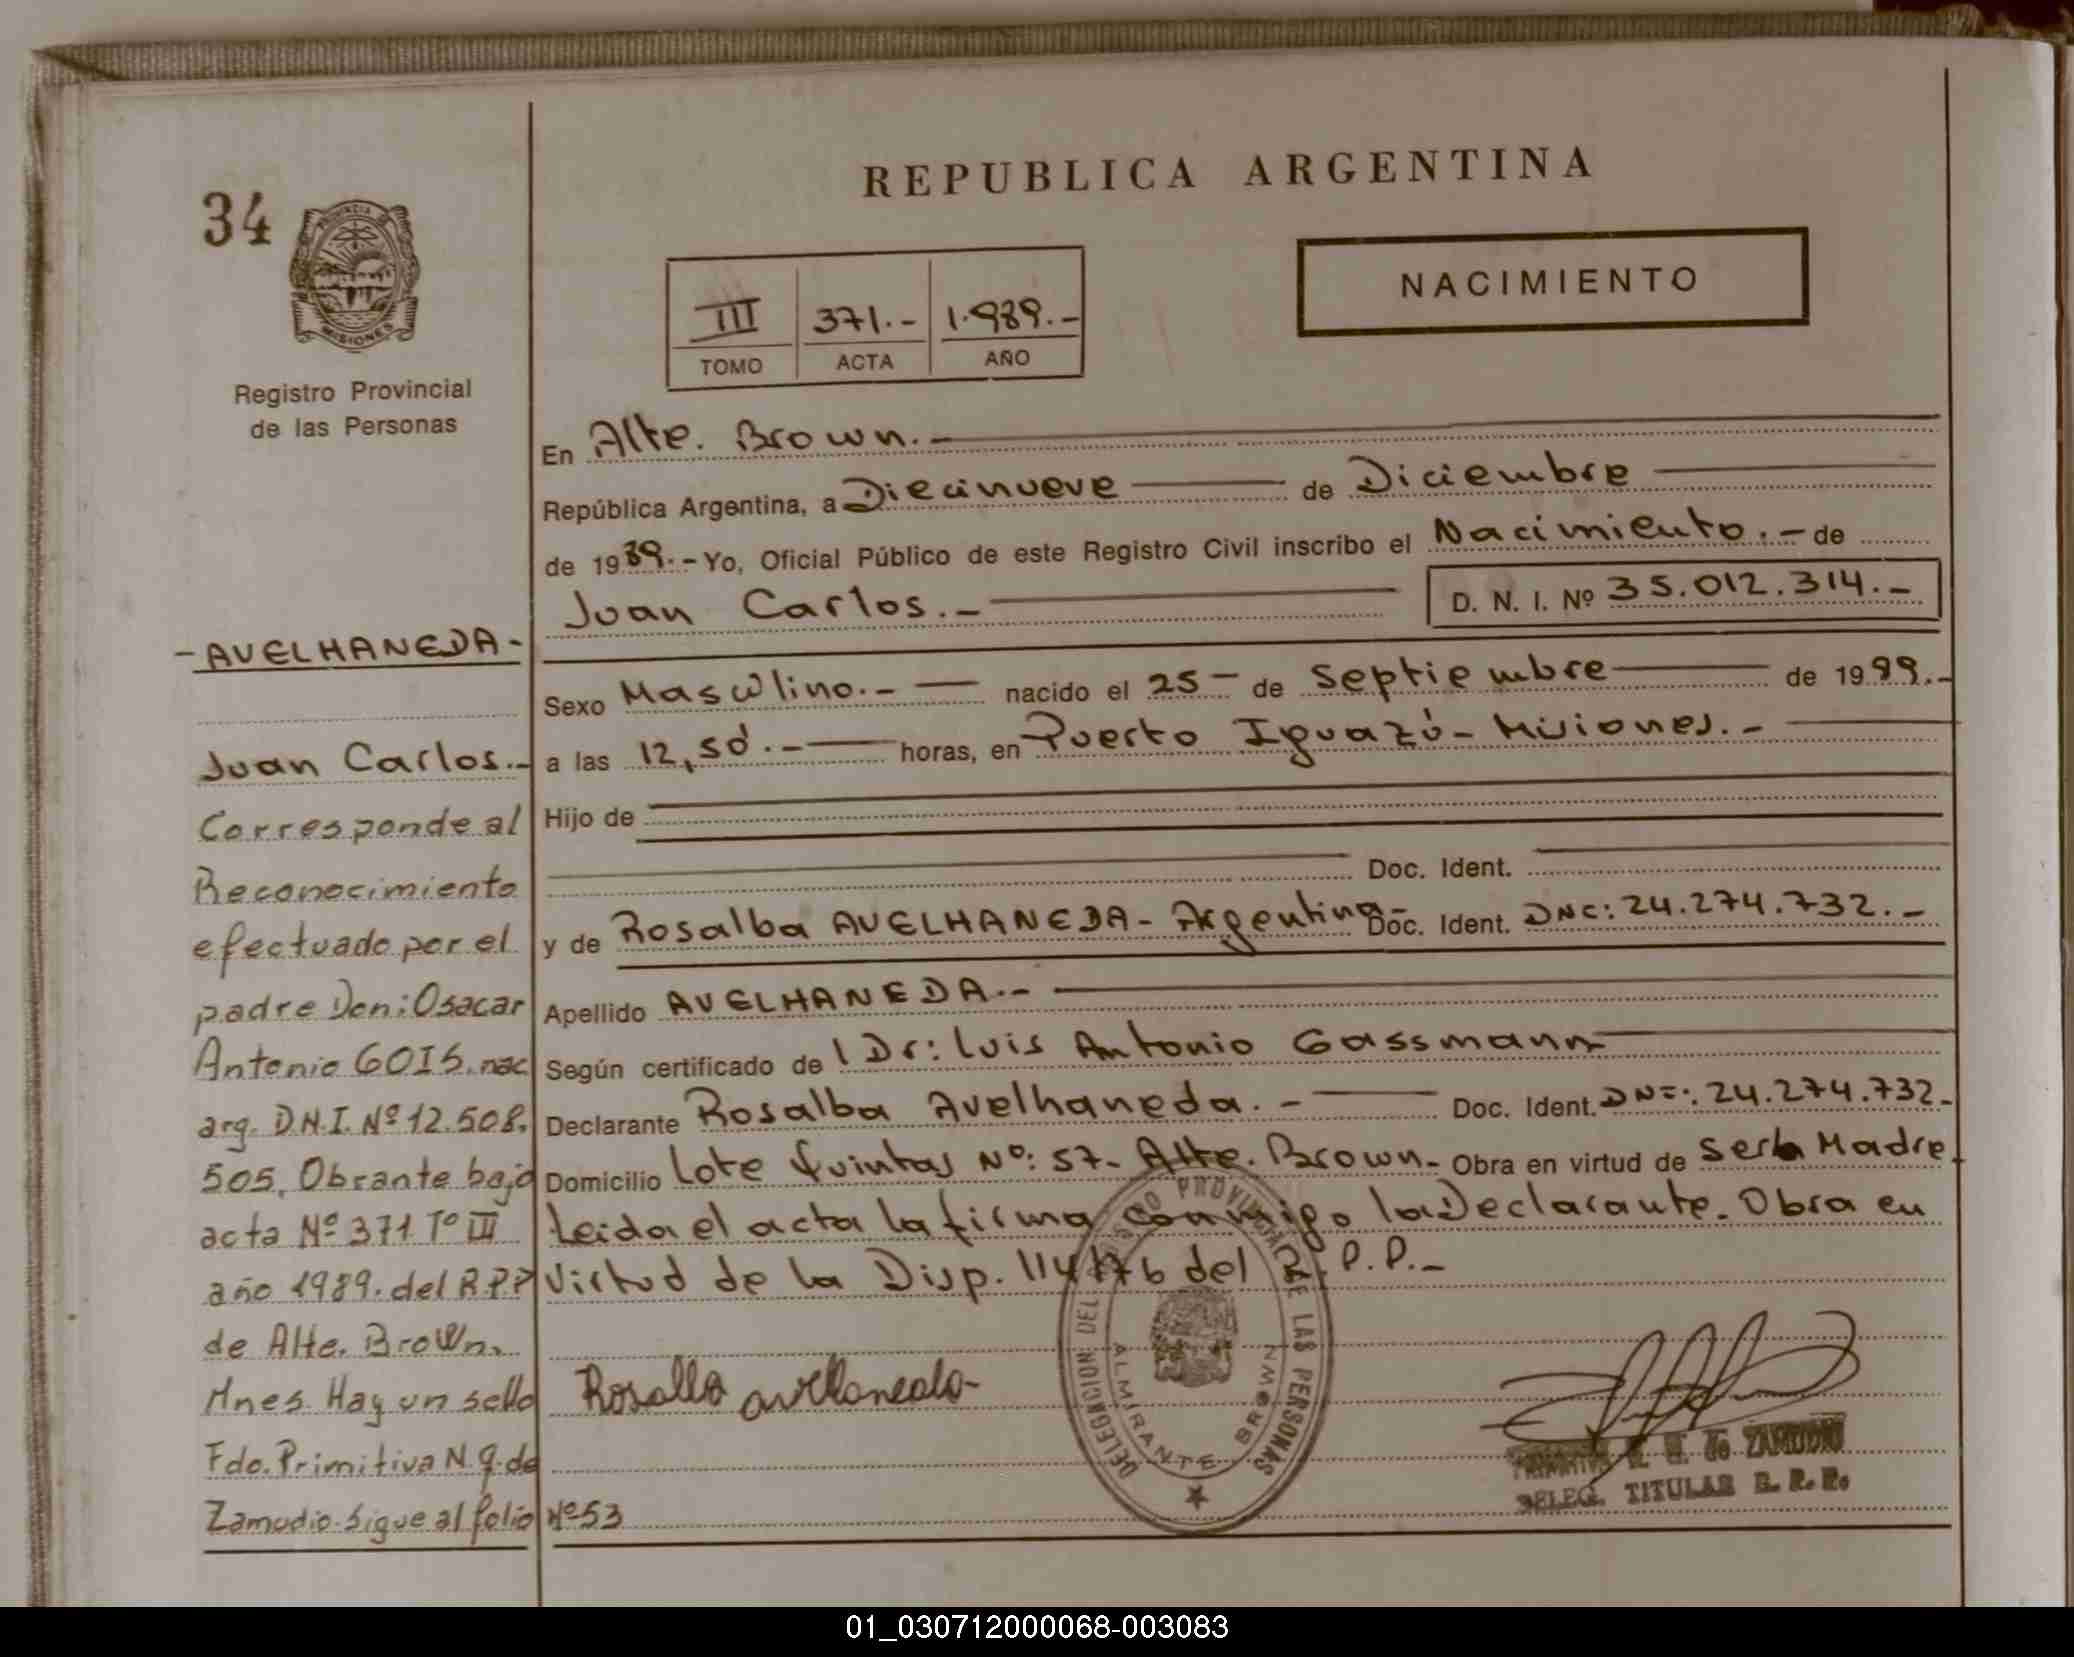 REPUBLICA ARGENTINA
34
PROVINCIA DE
MISIONES
Registro Provincial
de las Personas
NACIMIENTO
III 371.- 1.989.-
TOMO ACTA AÑO
En Alte. Brown.-
República Argentina, a Diecinueve de Diciembre
de 1989.- Yo, Oficial Público de este Registro Civil inscribo el Nacimiento.- de
Juan Carlos.- D. N. I. Nº 35.012.314.-
Sexo Masculino.- nacido el 25- de Septiembre de 1989.-
a las 12,50.- horas, en Puerto Iguazú- Misiones.-
Hijo de
Doc. Ident.
y de Rosalba AVELHANEDA- Argentina- Doc. Ident. DNC: 24.274.732.-
Apellido AVELHANEDA.-
Según certificado de l Dr: Luis Antonio Gassmann
Declarante Rosalba Avelhaneda.- Doc. Ident. 24.274.732-
Domicilio Lote Quintas Nº: 57- Alte. Brown- Obra en virtud de Ser la Madre
Leida el acta la firma conmigo la Declarante. Obra en
Virtud de la Disp. 114/76 del R.P.P.-
-AVELHANEDA-
Juan Carlos.-
Corresponde al
Reconocimiento
efectuado por el
padre Don: Osacar
Antonio GOIS. nac
arg. D.N.I. Nº 12.508.
505. Obrante bajo
acta Nº 371 Tº III
año 1989. del R.P.P
de Alte. Brown.
Mnes. Hay un sello
Fdo. Primitiva N. q. de
Zamudio. Sigue al folio Nº 53
Rosalba avellaneda-
DELEGACION DEL REGISTRO PROVINCIAL DE LAS PERSONAS
ALMIRANTE BROWN
PRIMITIVA N. de ZAMUDIO
DELEG. TITULAR R. P. P.
01_030712000068-003083